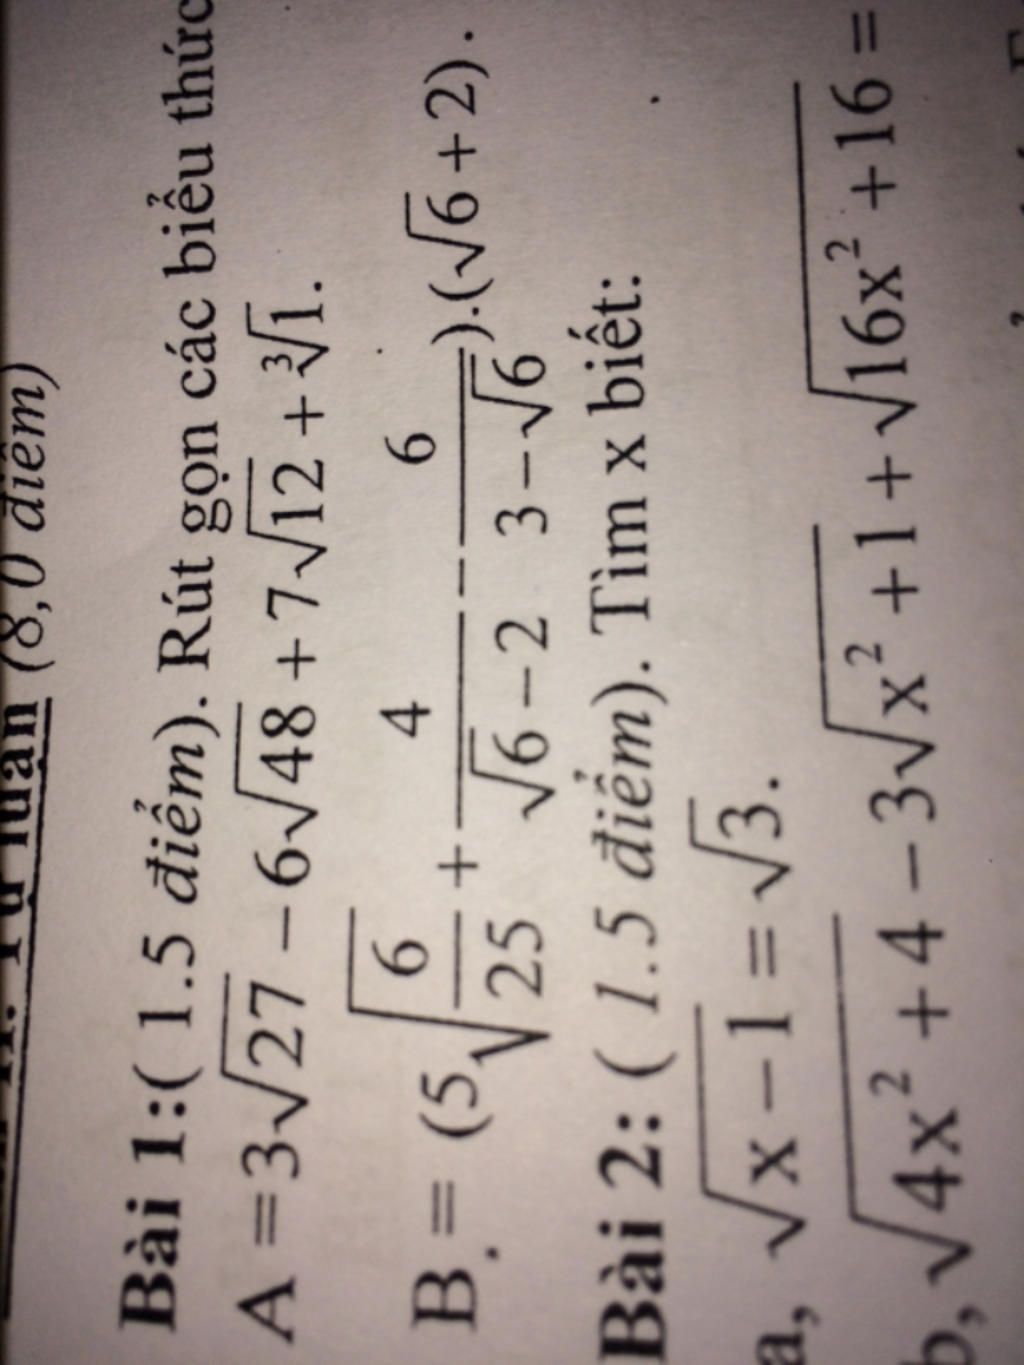 luận (8,0 điểm)
Bài 1:( 1.5 điểm). Rút gọn các biểu thức
A = 3√27 − 6√48 + 7√12 + ∛1.
B = (5√(6/25) + 4/(√6 − 2) − 6/(3 − √6)).(√6 + 2).
Bài 2: ( 1.5 điểm). Tìm x biết:
a, √(x − 1) = √3.
b, √(4x² + 4) − 3√(x² + 1) + √(16x² + 16) =